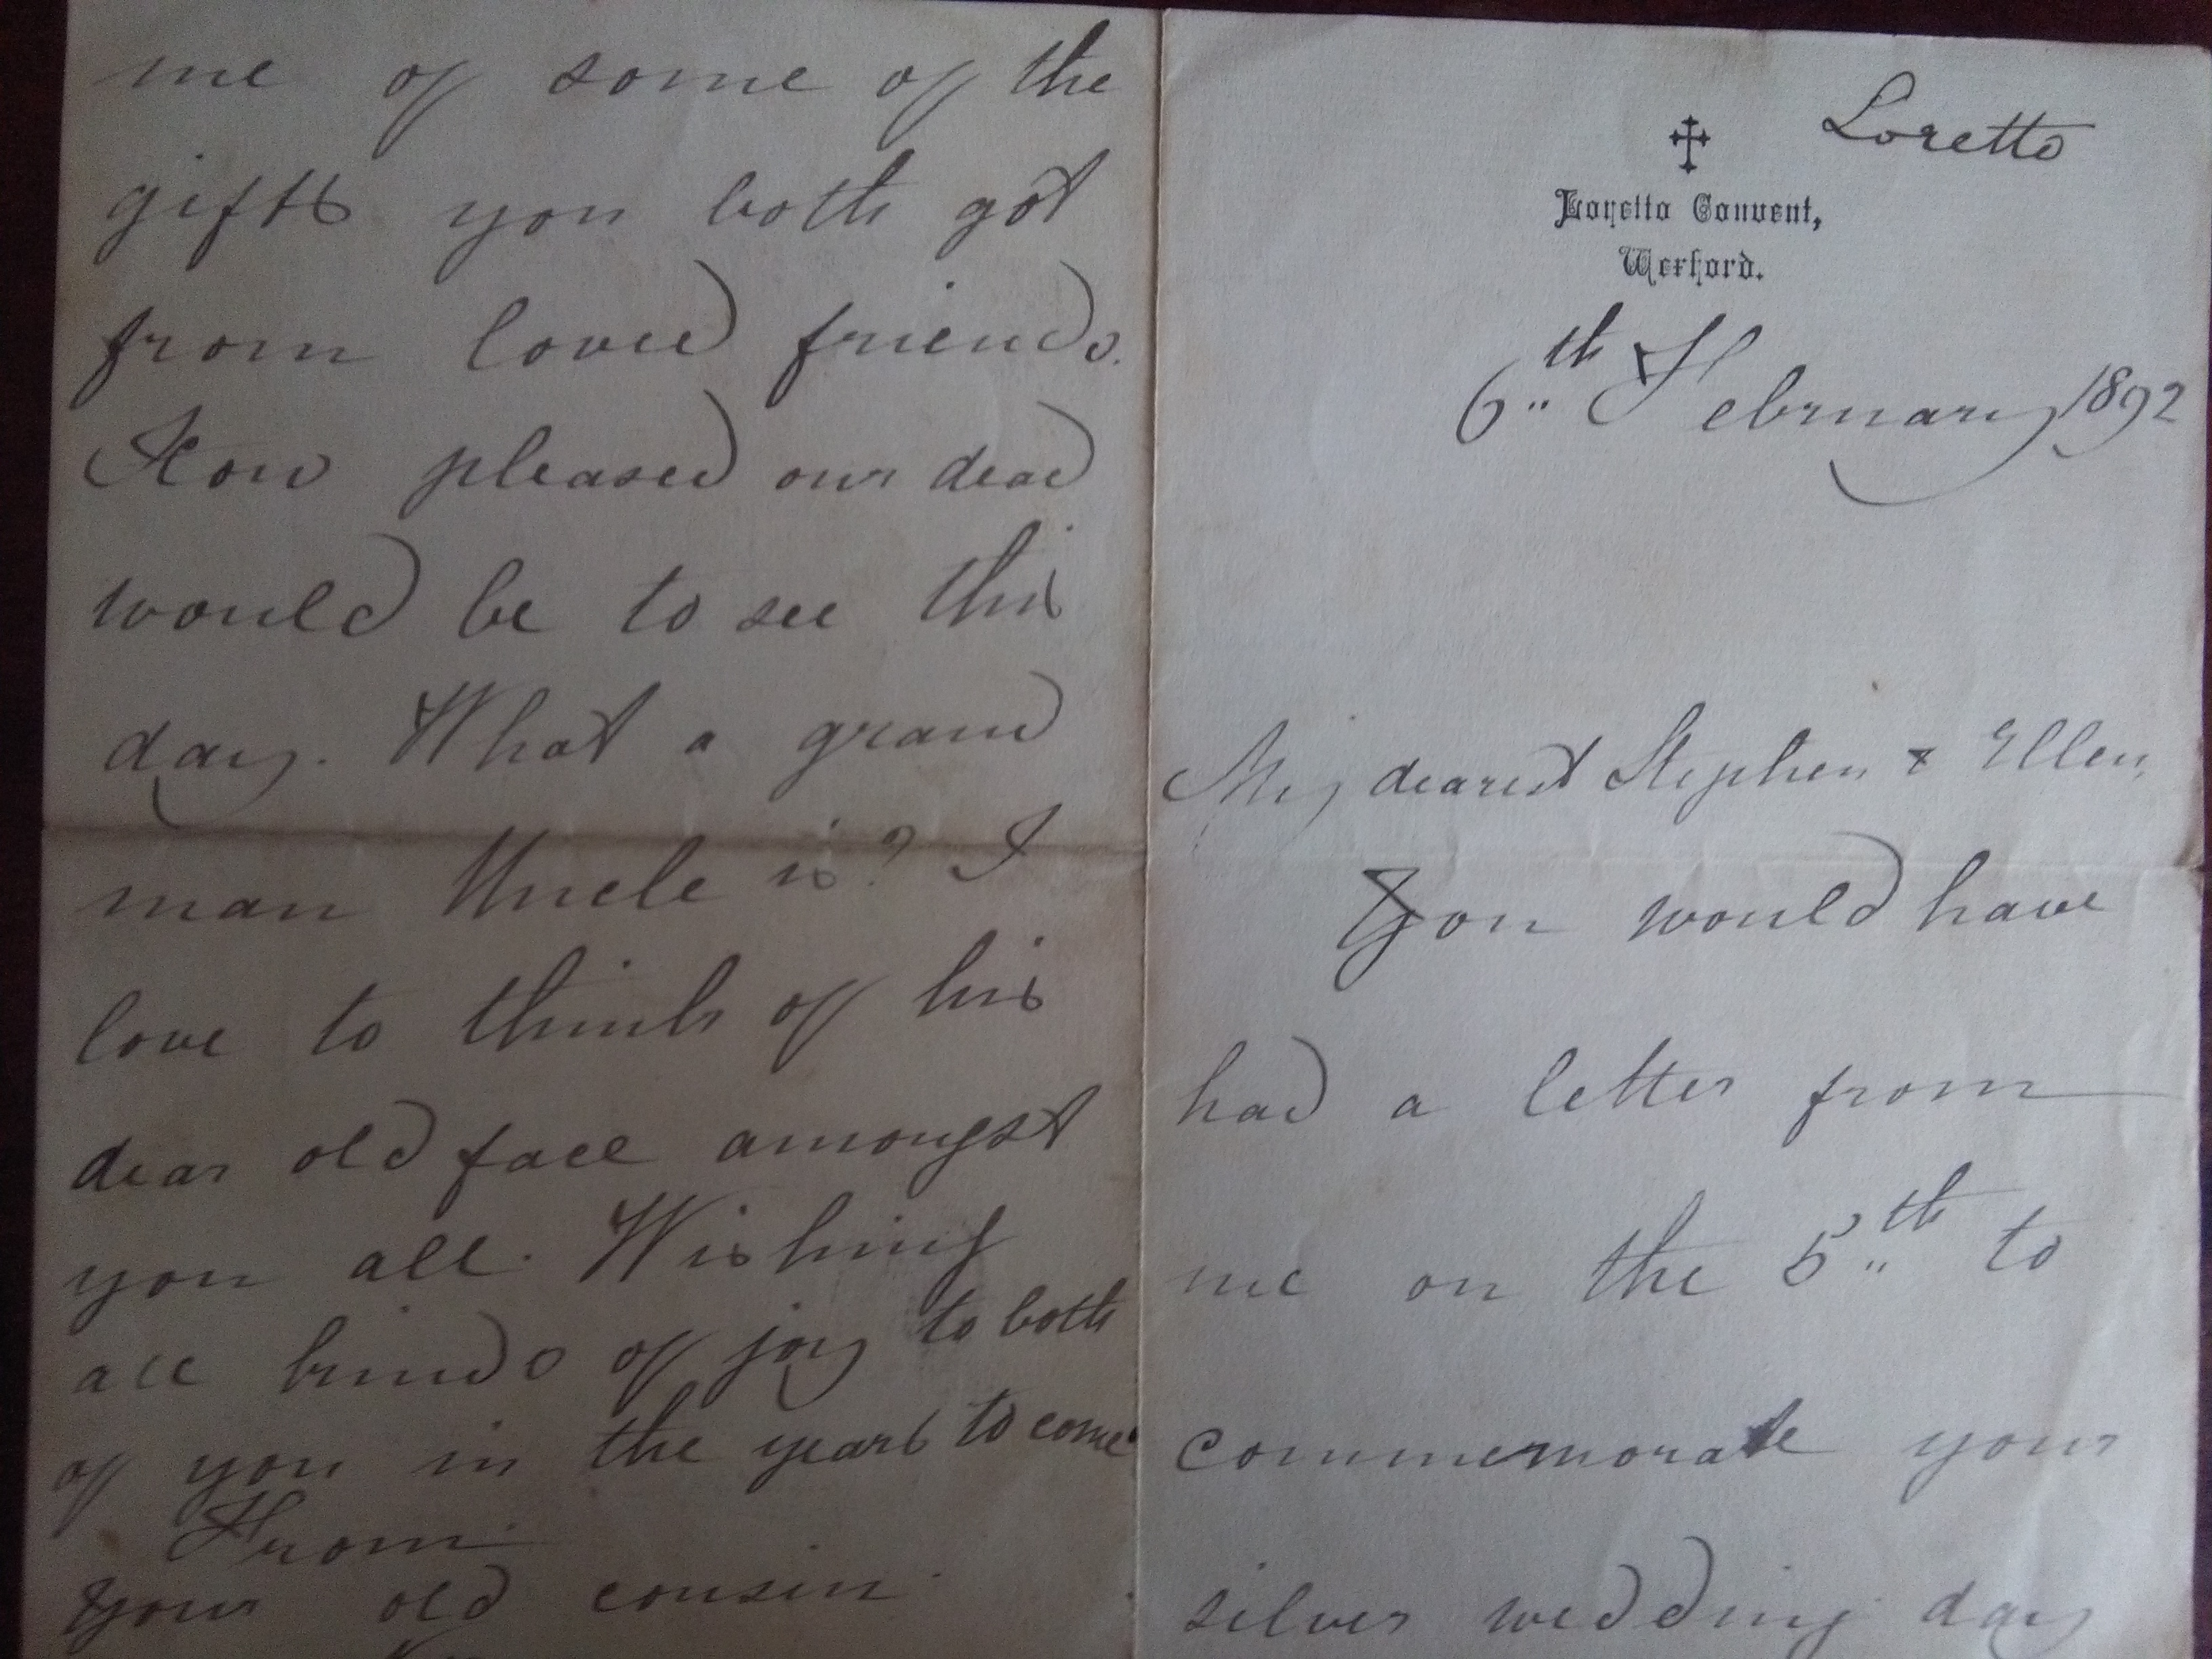 Loretto
Loretto Convent,
Wexford.
6th February 1892
My dearest Stephen & Ellen,
You would have
had a letter from
me on the 5th to
commemorate your
silver wedding day
me of some of the
gifts you both got
from loved friends.
How pleased our dead
would be to see this
day. What a grand
man Uncle is? I
love to think of his
dear old face amongst
you all. Wishing
all kinds of joy to both
of you in the years to come
From
your old cousin